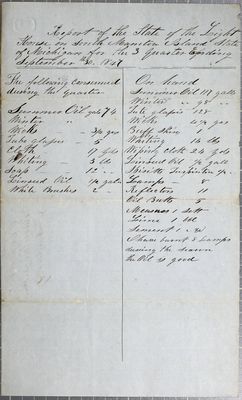 Report of the State of the Light
House on South Manitou Island State
of Michigan for the 3 Quarter Ending
September 30. 1847
The following consumed
during the Quarter
Summer Oil gals 74
Winter " "
Wicks - 3/4 gro
Tube glasses - 5
Cloth 17 yds
Whiting - 3 lbs
Soap 12 "
Linseed Oil 1/2 galls
White Brushes 2
On hand
Summer Oil 117 galls
Winter " 98 "
Tube glasses 128
Wicks gro
Buff Skins 1
Whiting 14 lbs
Wiping Cloth 24 yds
Linseed Oil 1/2 gall
Spirits Turpentine
Lamps - 8
Reflectors 11
Oil Butts 5
Measures 1 sett
Lime 1 bbl
Cement 1 "
I have burnt 8 Lamps
during the season
the Oil is good